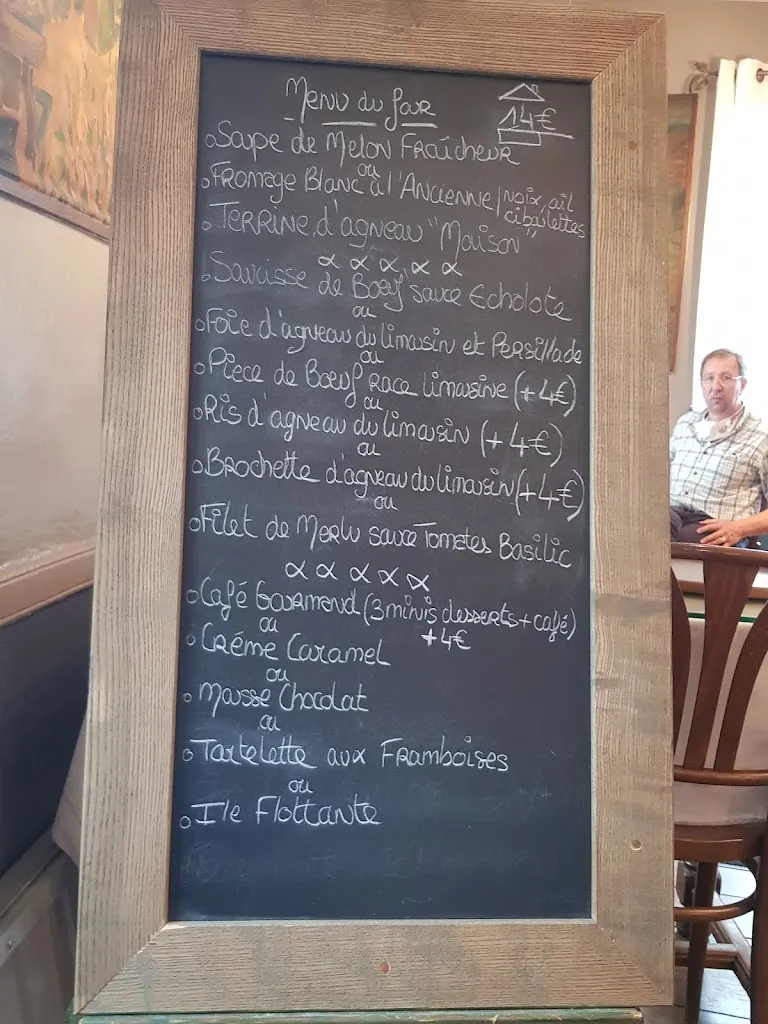 Menu du Jour
14€
Soupe de Melon Fraîcheur
ou
Fromage Blanc à l'Ancienne/noix, ail
ciboulettes
Terrine d'agneau "Maison"
Saucisse de Bœuf sauce Echolote
ou
Foie d'agneau du limousin et Persillade
ou
Pièce de Bœuf Race limousine (+4€)
ou
Ris d'agneau du limousin (+4€)
ou
Brochette d'agneau du limousin (+4€)
ou
Filet de Merlu sauce Tomates Basilic
Café Gourmend (3 minis desserts + café)
+4€
ou
Créme Caramel
ou
Mousse Chocolat
ou
Tartelette aux Framboises
ou
Ile Flottante